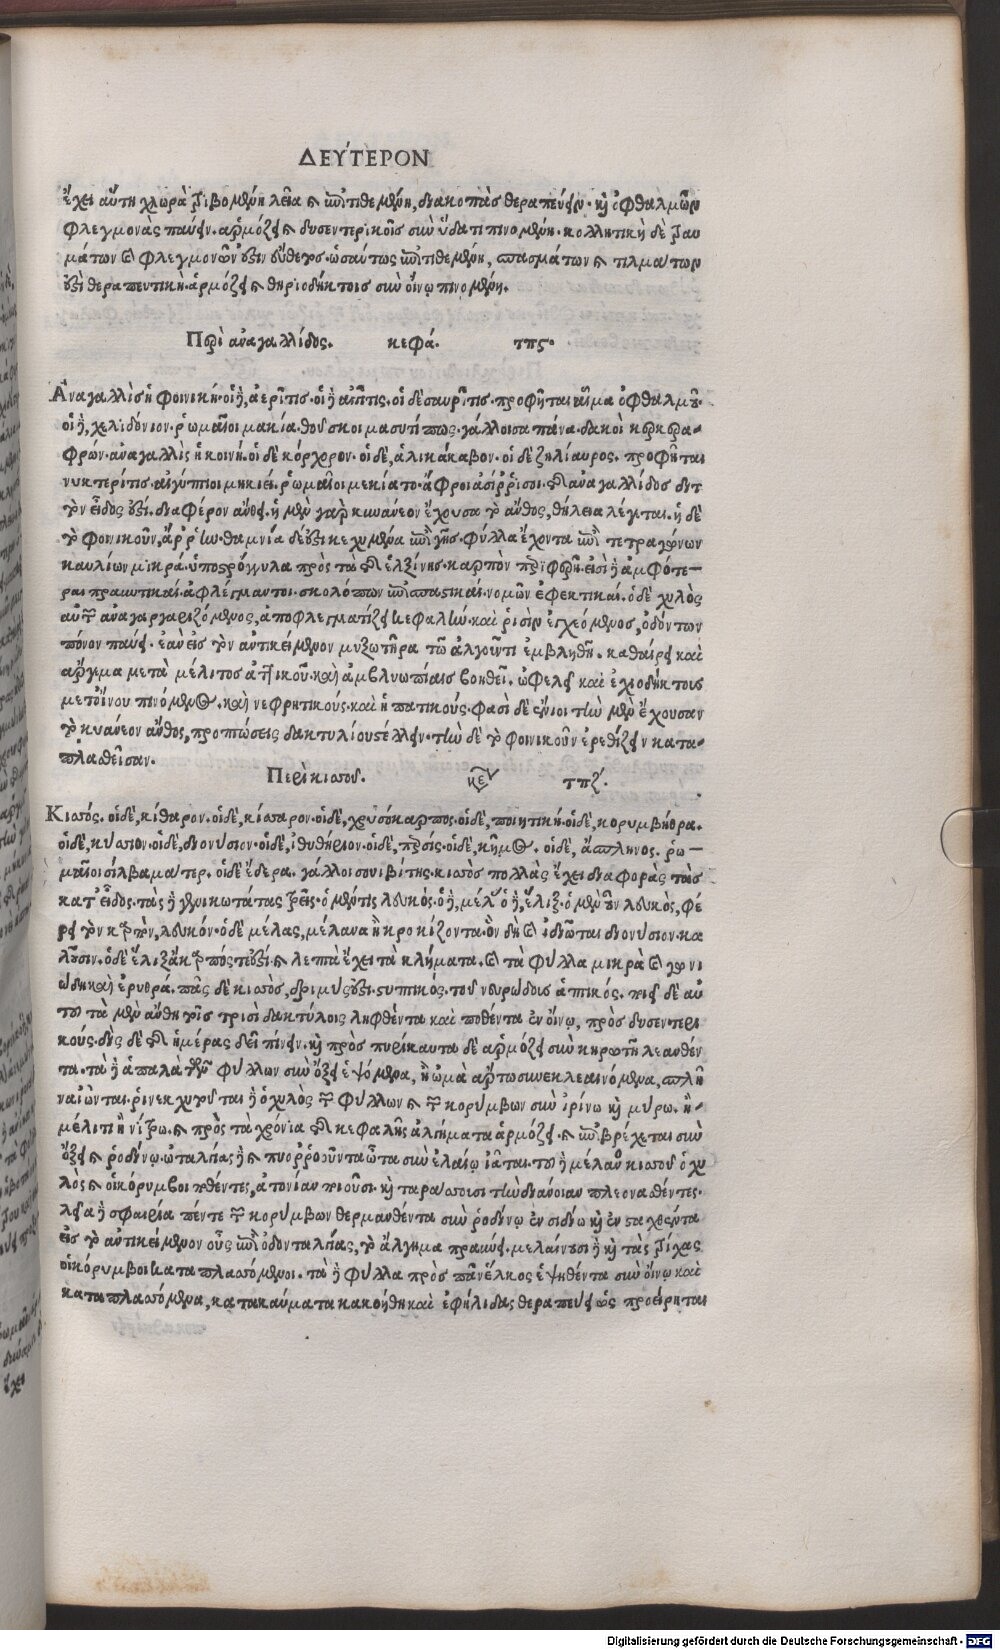 ΔΕΥΤΕΡΟΝ
ἔχει αὕτη χλωρὰ τριβομένη λεῖα καὶ ἐπιτιθεμένη, διακοπὰς θεραπεύειν. καὶ ὀφθαλμῶν
φλεγμονὰς παύειν. ἁρμόζει καὶ δυσεντερικοῖς σὺν ὕδατι πινομένη. κολλητικὴ δὲ τραυ
μάτων καὶ φλεγμονῶν ἐστιν ὡσαύτως ἐπιτιθεμένη, σπασμάτων καὶ τιλμάτων
ἐστὶ θεραπευτικὴ. ἁρμόζει καὶ θηριοδήκτοις σὺν οἴνῳ πινομένη.
Περὶ ἀναγαλλίδος. κεφά. τπϛ.
Ἀναγαλλὶς ἡ φοινικῆ. οἱ δὲ, ἀερῖτις. οἱ δὲ αἰγῖτις. οἱ δὲ σαυρῖτις. προφῆται αἷμα ὀφθαλμοῦ.
οἱ δὲ, χελιδόνιον. ῥωμαῖοι μακία. θοῦσκοι μασυτίπως. γάλλοι σαπάνα. δακοὶ κερκερα-
φρών. ἀναγαλλὶς ἡ κοινή. οἱ δὲ κόρχορον. οἱ δὲ, ἁλικάκαβον. οἱ δὲ ζηλίαυρος. προφῆται
νυκτερίτις. αἰγύπτιοι μηκιεί. ῥωμαῖοι μεκίατο. ἄφροι ἀσίρρισοι. τῆς ἀναγαλλίδος διτ
τὸν εἶδος ἐστι. διαφέρον ἄνθει. ἡ μὲν γὰρ κυάνεον ἔχουσα τὸ ἄνθος, θήλεια λέγεται. ἡ δὲ
τὸ φοινικοῦν, ἄρρην. θαμνία δέ ἐστι κεχυμένα ἐπὶ γῆς. φύλλα ἔχοντα ἐπὶ τετραγώνων
καυλίων μικρά. ὑποστρόγγυλα πρὸς τὰ τῆς ἑλξίνης. καρπὸν περιφερῆ. εἰσὶ δὲ ἀμφότε-
ραι πραυντικαί. ἀφλέγμαντοι. σκολόπων ἐπισπαστικαί. νομῶν ἐφεκτικαί. ὁ δὲ χυλὸς
αὐτῶν ἀναγαργαριζόμενος, ἀποφλεγματίζει κεφαλὴν. καὶ ῥισὶν ἐγχεόμενος, ὀδόντων
πόνον παύει. ἐὰν εἰς τὸν ἀντικείμενον μυξωτῆρα τῷ ἀλγοῦντι ἐμβληθῇ. καθαίρει καὶ
ἄργεμα μετὰ μέλιτος ἀττικοῦ. καὶ ἀμβλυωπίαις βοηθεῖ. ὠφελεῖ καὶ ἐχιοδήκτοις
μετ οἴνου πινόμενος. καὶ νεφρητικούς. καὶ ἡπατικούς. φασὶ δὲ ἔνιοι τὴν μὲν ἔχουσαν
τὸ κυάνεον ἄνθος, προπτώσεις δακτυλίου στέλλειν. τὴν δὲ τὸ φοινικοῦν ἐρεθίζειν κατα-
πλασθεῖσαν.
Περὶ κισσοῦ. κε τπζ.
Κισσός. οἱ δὲ, κίθαρον. οἱ δὲ, κίσσαρον. οἱ δὲ, χρυσόκαρπος. οἱ δὲ, ποιητική. οἱ δὲ, κορυμβήθρα.
οἱ δὲ, κύσσιον. οἱ δὲ, διονύσιον. οἱ δὲ, ἰθυθήριον. οἱ δὲ, περσίς. οἱ δὲ, κῆμος. οἱ δὲ, ἄσπληνος. ῥω-
μαῖοι σίλβαμάτερ. οἱ δὲ ἕδερα. γάλλοι σουιβίτης. κισσὸς πολλὰς ἔχει διαφορὰς τὰς
κατ εἶδος. τὰς δὲ γενικωτάτας τρεῖς. ὁ μέν τις λευκός. ὁ δὲ, μέλας. ὁ δὲ, ἕλιξ. ὁ μὲν οὖν λευκὸς, φέ
ρει τὸν καρπὸν, λευκόν. ὁ δὲ μέλας, μέλανα ἢ κροκίζοντα. ὃν δὴ καὶ ἰδιῶται διονύσιον. κα
λοῦσιν. ὁ δὲ ἕλιξ ἄκαρπός τέ ἐστι. καὶ λεπτὰ ἔχει τὰ κλήματα. καὶ τὰ φύλλα μικρὰ καὶ γωνι
ώδη καὶ ἐρυθρά. πᾶς δὲ κισσὸς, δριμύς ἐστι. στυπτικός. τοῦ νευρώδους ἁπτικός. ποιεῖ δὲ αὐ
τοῦ τὰ μὲν ἄνθη τρισὶ δακτύλοις ληφθέντα καὶ ποθέντα ἐν οἴνῳ, πρὸς δυσεντερι
κούς. δὶς δὲ τῆς ἡμέρας δεῖ πίνειν. καὶ πρὸς πυρίκαυτα δὲ ἁρμόζει σὺν κηρωτῇ λεανθέν
τα. τὰ δὲ ἁπαλὰ τῶν φύλλων σὺν ὄξει ἑψόμενα, ἢ ὠμὰ ἄρτῳ συνεκλεαινόμενα, σπλῆ
να ἰῶνται. ῥινεγχυτεῖται δὲ ὁ χυλὸς τῶν φύλλων καὶ τῶν κορύμβων σὺν ἰρίνῳ καὶ μύρῳ. ἢ-
μέλιτι ἢ νίτρῳ. καὶ πρὸς τὰ χρόνια τῆς κεφαλῆς ἀλγήματα ἁρμόζει. καὶ ἐπιβρέχεται σὺν
ὄξει καὶ ῥοδίνῳ. ὠταλγίας δὲ καὶ πυορροοῦντα ὦτα σὺν ἐλαίῳ ἰᾶται. τοῦ δὲ μέλανος κισσοῦ ὁ χυ
λὸς καὶ οἱ κόρυμβοι ποθέντες, ἀτονίαν ποιοῦσι. καὶ ταράσσουσι τὴν διάνοιαν πλεονασθέντες.
λεῖα δὲ σφαιρία πέντε τῶν κορύμβων θερμανθέντα σὺν ῥοδίνῳ ἐν σιδίῳ καὶ ἐνσταχθέντα
εἰς τὸ ἀντικείμενον οὖς ἐπὶ ὀδονταλγίας, τὸ ἄλγημα πραΰνει. μελαίνουσι δὲ καὶ τὰς τρίχας
οἱ κόρυμβοι καταπλασσόμενοι. τὰ δὲ φύλλα πρὸς πᾶν ἕλκος ἑψηθέντα σὺν οἴνῳ καὶ
καταπλασσόμενα, κατακαύματα κακοήθη καὶ ἐφήλιδας θεραπεύει ὡς προείρηται
Digitalisierung gefördert durch die Deutsche Forschungsgemeinschaft - DFG